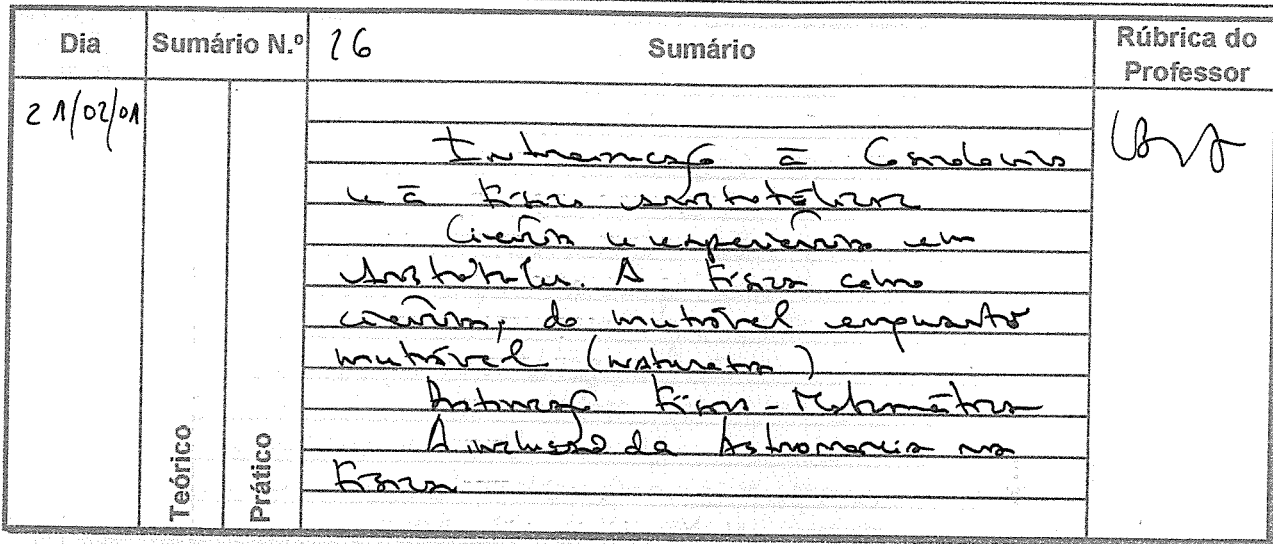 Dia Sumário N.º 26 Sumário Rúbrica do Professor
21/02/01
Introdução à
e à Física aristotélica
Ciência e experiência em
Aristóteles. A Física como
ciência, do mutável enquanto
mutável (natureza)
Física - Matemática
A inclusão da Astronomia na
Física
Teórico
Prático